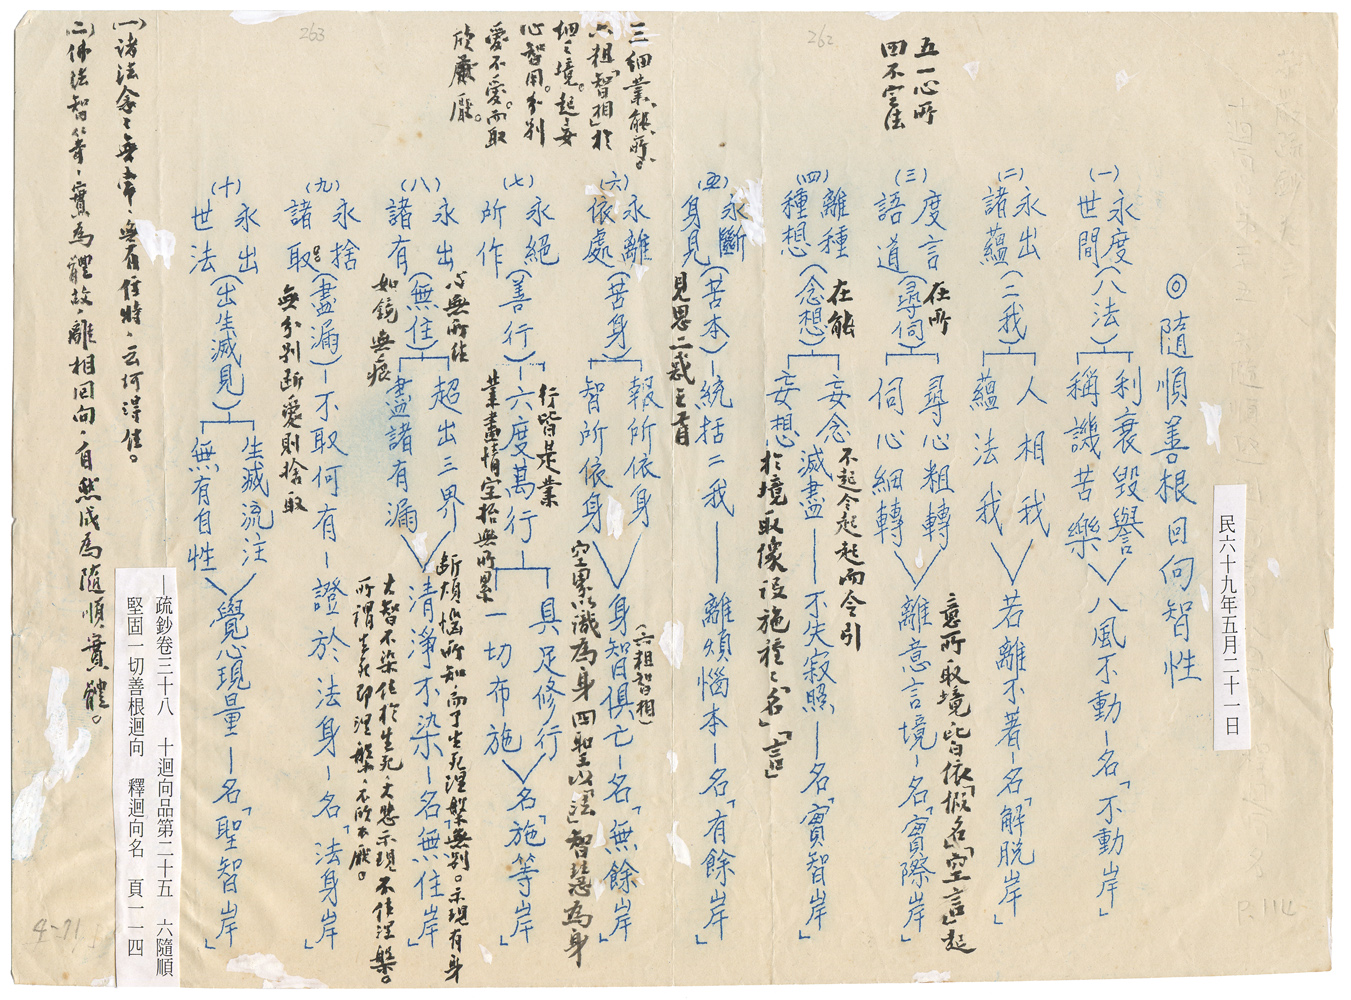 民六十九年五月二十一日
◎隨順善根回向智性
五一心所
四不定法
(一)永度世間(八法)
利衰毀譽
稱譏苦樂
八風不動—名「不動岸」
(二)永出諸蘊(二我)
人相我
蘊法我
若離不著—名「解脫岸」
(三)度言語道(尋伺)
尋心粗轉
伺心細轉
離意言境—名「實際岸」
在所
意所取境皆依「假名」「空言」起
(四)離種種想(念想)
妄念
妄想
滅盡—不失寂照—名「實智岸」
在能
不起令起起而令引
於境取像設施種種「名」「言」
(五)永斷身見(苦本)—統括二我—離煩惱本—名「有餘岸」
見思二惑之首
三細業、能、所。
六粗「智相」於
細之境。起妄
心智用。分別
愛不愛。而取
欣厭。
(六)永離依處(苦身)
報所依身
智所依身
身智俱亡—名「無餘岸」
(六粗智相)
空界以識為身四聖以「法」智慧為身
(七)永絕所作(善行)—六度萬行
具足修行
一切布施
名「施等岸」
行皆是業
業盡情空捨無所累
(八)永出諸有(無住)
超出三界
盡諸有漏
清淨不染—名「無住岸」
心無所住
如鏡無痕
斷煩惱所知而了生死涅槃無別。示現有身
大智不染住於生死、大悲示現不住涅槃。
所謂生死即涅槃、不欣不厭。
(九)永捨諸取(盡漏)—不取何有—證於法身—名「法身岸」
無分別斷愛則捨取
(十)永出世法(出生滅見)
生滅流注
無有自性
覺心現量—名「聖智岸」
(一)諸法念念無常、無有住時、云何得住。
(二)佛法智等、實為體故、離相回向、自然成為隨順實體。
—疏鈔卷三十八　十迴向品第二十五　六隨順
堅固一切善根迴向　釋迴向名　頁一一四
262
263
P.114
4-71